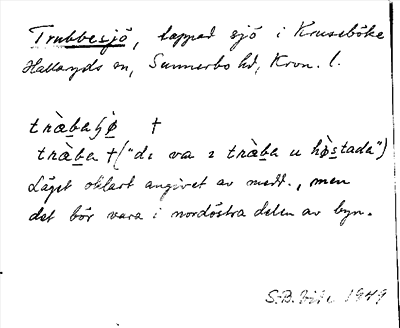 Trubbesjö, tappad sjö i Kruseböke
Hallaryds sn, Sunnerbo hd, Kron. l.
tràbaɧø̀ †
tràba † ("de va ɩ tràba u hø̀stada")
Läget oklart angivet av medd., men
det bör vara i nordöstra delen av byn.
S.B. 1949